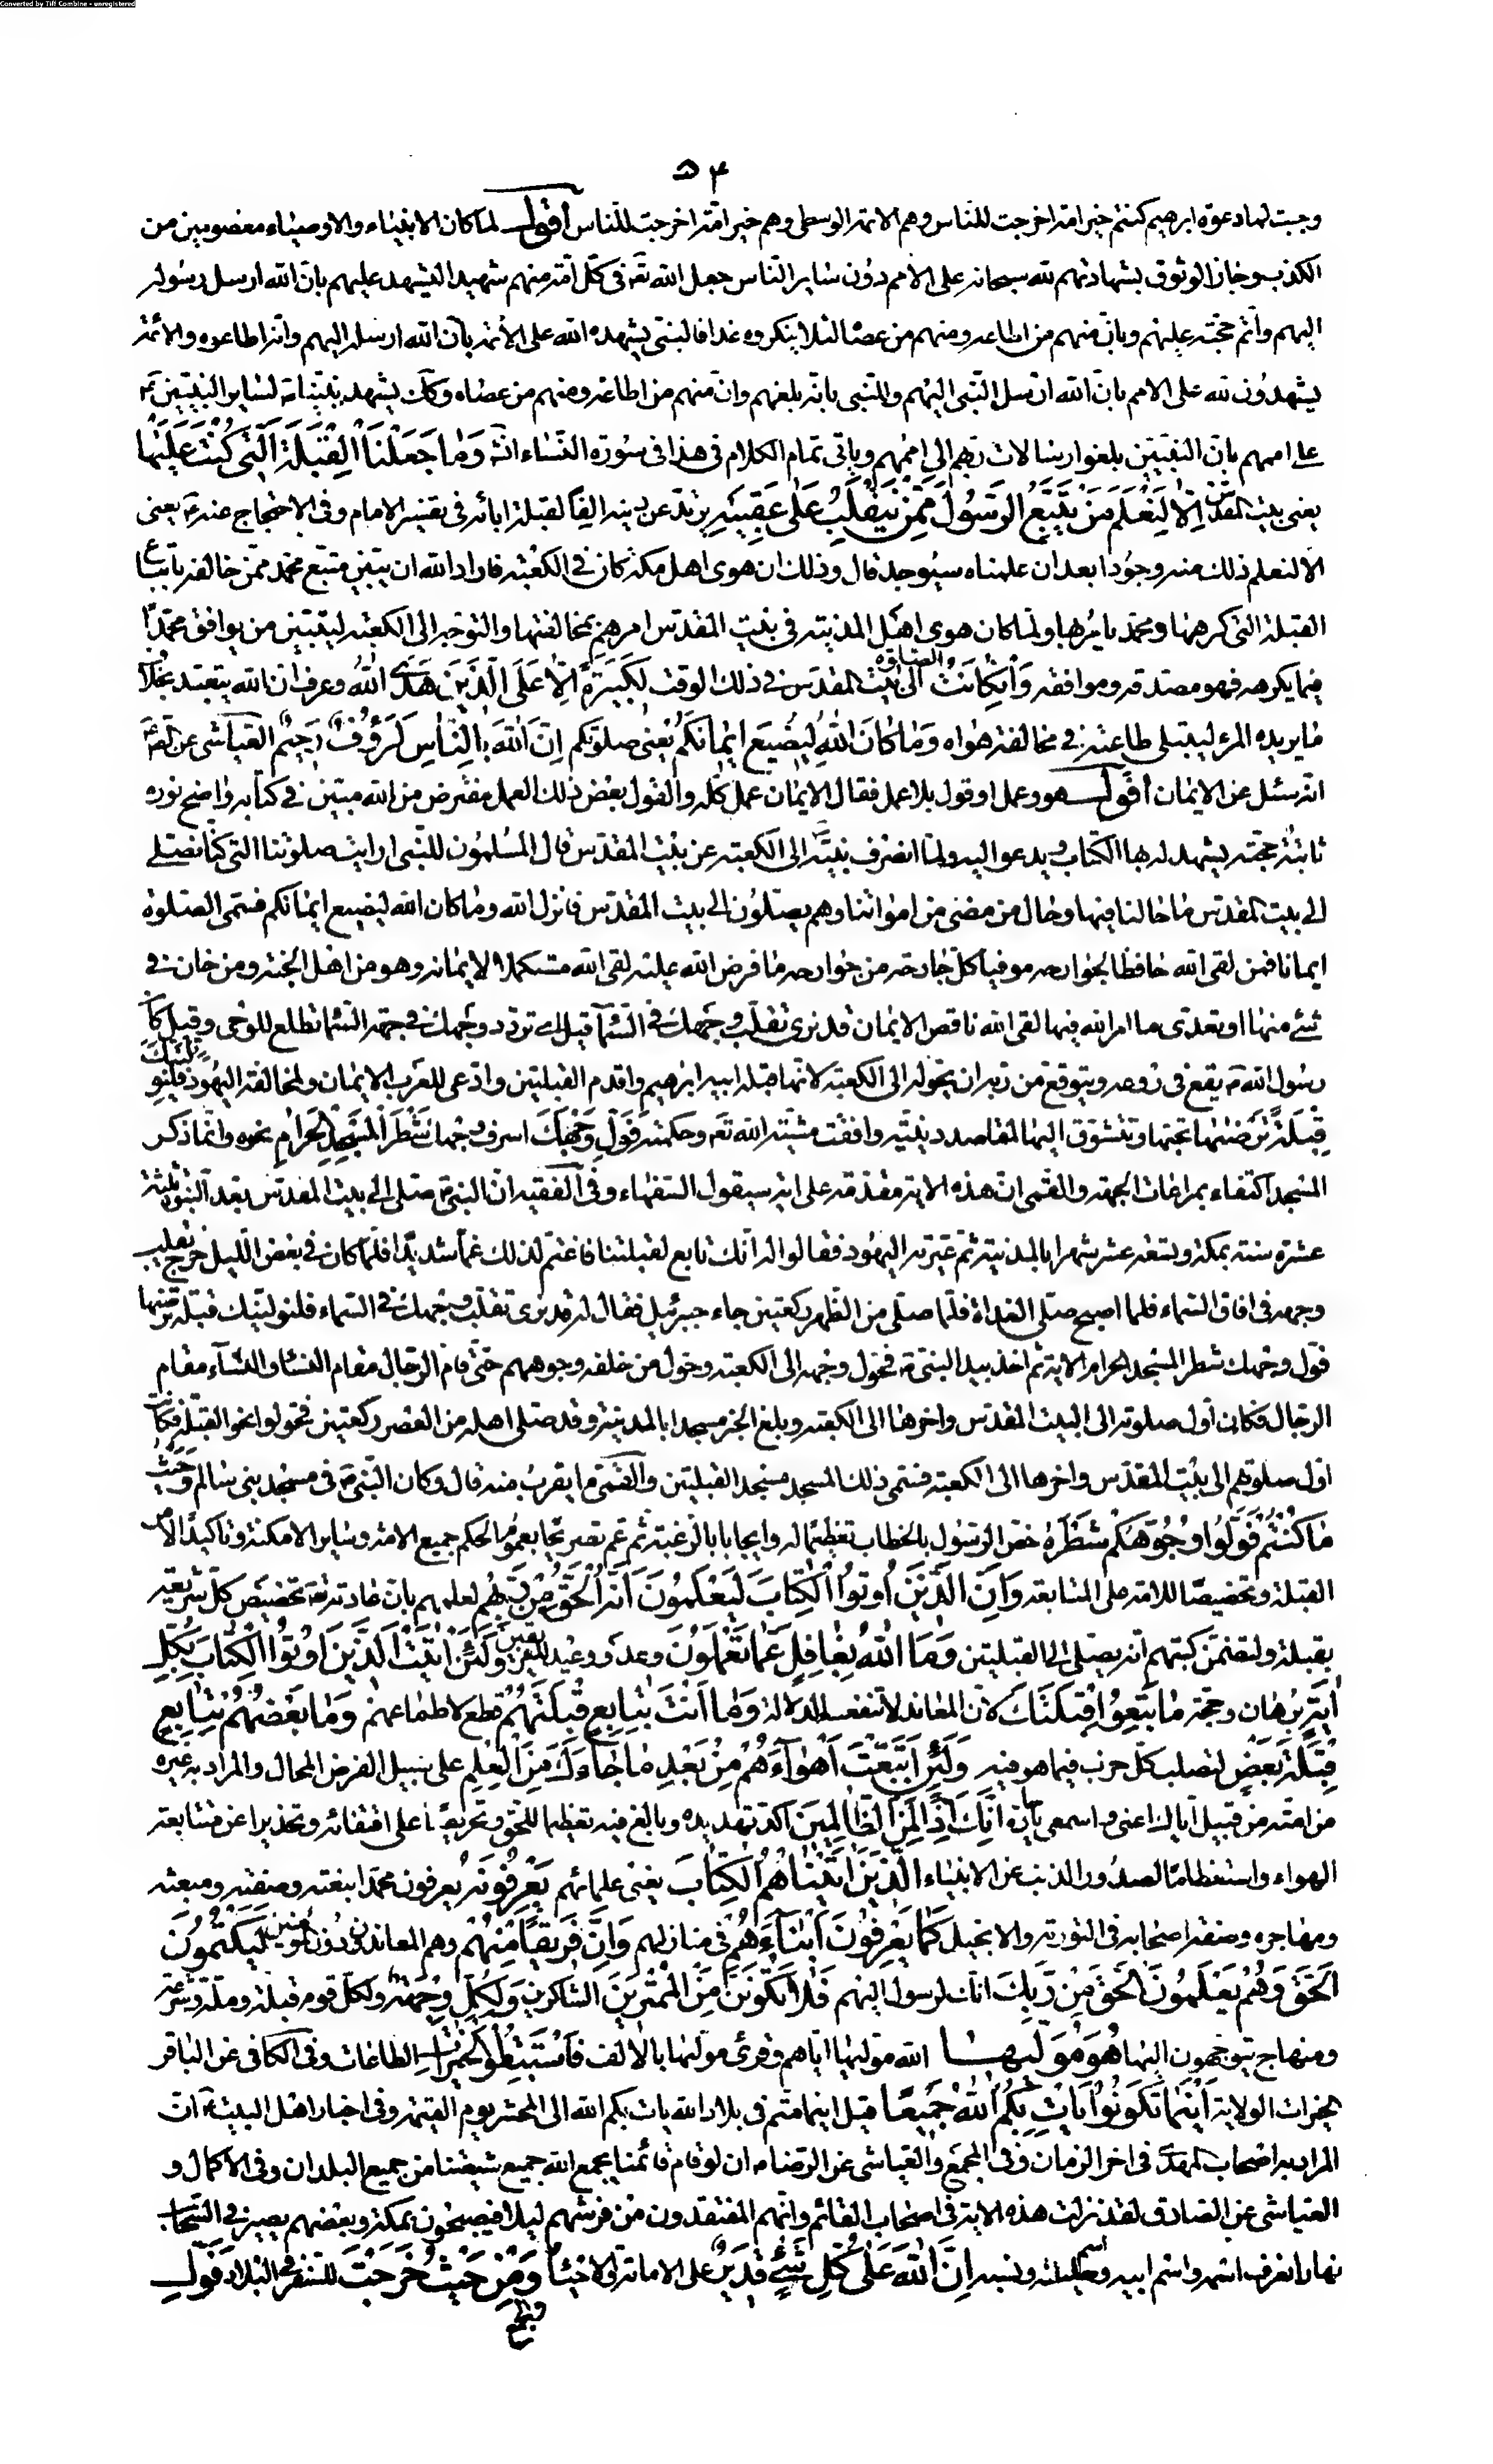 Converted by Tiff Combine - unregistered
٥٤
وجبت لها دعوة ابرهيم كنتم خير امة اخرجت للناس وهم الامة الوسطى وهم خير امة اخرجت للناس أقول لما كان الانبياء والاوصياء معصومين من
الكذب وجاز الوثوق بشهادتهم لله سبحانه على الامم دون ساير الناس جعل الله تعه في كل امة منهم شهيدا ليشهد عليهم بان الله ارسل رسوله
اليهم واتم حجته عليهم وبان منهم من اطاعه ومنهم من عصاه لئلا ينكروه غدا فالنبي يشهد لله على الائمة بان الله ارسله اليهم وانه اطاعوه والائمة
يشهدون لله على الامم بان الله ارسل النبي اليهم وللنبي بانه بلغهم وان منهم من اطاعه ومنهم من عصاه وكذلك يشهد نبينا لساير النبيين
على اممهم بان النبيين بلغوا رسالات ربهم الى اممهم وياتي تمام الكلام في هذا في سورة النساء انشه وَمَا جَعَلْنَا الْقِبْلَةَ الَّتِي كُنْتَ عَلَيْهَا
يعني بيت المقدس اِلَّا لِنَعْلَمَ مَنْ يَتَّبِعُ الرَّسُولَ مِمَّنْ يَنْقَلِبُ عَلَى عَقِبَيْهِ يرتد عن دينه الفا لقبلة ابائه في تفسير الامام وفي الاحتجاج عنه يعني
الا لنعلم ذلك منه وجودا بعد ان علمناه سيوجد قال وذلك ان هوى اهل مكة كان في الكعبة فاراد الله ان يبين متبع محمد ممن خالفه باتباع
القبلة التي كرهها ومحمد يامر بها ولما كان هوى اهل المدينة في بيت المقدس امرهم بمخالفتها والتوجه الى الكعبة ليتبين من يوافق محمدا
فيما يكرهه فهو مصدقه وموافقه وَاِنْ كَانَتْ الصلوة الى بيت المقدس في ذلك الوقت لَكَبِيرَةً اِلَّا عَلَى الَّذِينَ هَدَى اللهُ وعرف ان الله يتعبد بخلاف
ما يريده المرء ليبتلي طاعته في مخالفة هواه وَمَا كَانَ اللهُ لِيُضِيعَ اِيمَانَكُمْ يعني صلوتكم اِنَّ اللهَ بِالنَّاسِ لَرَؤُفٌ رَحِيمٌ العياشي عن الص
انه سئل عن الايمان أقول هو وعمل او قول بلا عمل فقال الايمان عمل كله والقول بعض ذلك العمل مفترض من الله مبين في كتابه واضح نوره
ثابتة حجته يشهد له بها الكتاب ويدعو اليه ولما انصرف نبيه الى الكعبة عن بيت المقدس قال المسلمون للنبي ارايت صلوتنا التي كنا نصلي
الى بيت المقدس ما حالنا فيها وحال من مضى من امواتنا وهم يصلون الى بيت المقدس فانزل الله وما كان الله ليضيع ايمانكم فسمى الصلوة
ايمانا فمن لقى الله حافظا لجوارحه موفيا كل جارحة من جوارحه ما فرض الله عليه لقى الله مستكملا لايمانه وهو من اهل الجنة ومن خان في
شيء منها او تعدى ما امر الله فيها لقى الله ناقص الايمان قد نرى تقلب وجهك في السماء قيل اي تردد وجهك في جهة السماء تطلع للوحي وقيل كان
رسول الله ص يقع في روعه ويتوقع من ربه ان يحوله الى الكعبة لانها قبلة ابيه ابرهيم واقدم القبلتين وادعى للعرب الى الايمان ولمخالفة اليهود فَلَنُوَلِّيَنَّكَ
قِبْلَةً تَرْضَاهَا تحبها وتتشوق اليها لمقاصد دينية وافقت مشية الله تعه وحكمته فَوَلِّ وَجْهَكَ اصرف وجهك شَطْرَ الْمَسْجِدِ الْحَرَامِ نحوه وانما ذكر
المسجد اكتفاء بمراعات الجهة والقمي ان هذه الاية متقدمة على اية سيقول السفهاء وفي الفقيه ان النبي ص صلى الى بيت المقدس بعد النبوة ثلثة
عشرة سنة بمكة وتسعة عشر شهرا بالمدينة ثم عيرته اليهود فقالوا له انك تابع لقبلتنا فاغتم لذلك غما شديدا فلما كان في بعض الليل خرج يقلب
وجهه في افاق السماء فلما اصبح صلى الغداة فلما صلى من الظهر ركعتين جاء جبرئيل فقال له قد نرى تقلب وجهك في السماء فلنولينك قبلة ترضيها
فول وجهك شطر المسجد الحرام الاية ثم اخذ بيد النبي ص فحول وجهه الى الكعبة وحول من خلفه وجوههم حتى قام الرجال مقام النساء والنساء مقام
الرجال فكان اول صلوته الى البيت المقدس واخرها الى الكعبة وبلغ الخبر مسجدا بالمدينة وقد صلى اهله من العصر ركعتين فحولوا نحو القبلة فكانت
اول صلوتهم الى بيت المقدس واخرها الى الكعبة فسمى ذلك المسجد مسجد القبلتين والقمي ما يقرب منه قال وكان النبي ص في مسجد بني سالم وَحَيْثُ
مَا كُنْتُمْ فَوَلُّوا وُجُوهَكُمْ شَطْرَهُ خص الرسول بالخطاب تعظيما له وايجابا بالرغبته ثم عم تصريحا بعموم الحكم جميع الامة وساير الامكنة وتاكيدا لامر
القبلة وتحضيضا للامة على المتابعة وَاِنَّ الَّذِينَ اُوتُوا الْكِتَابَ لَيَعْلَمُونَ اَنَّهُ الْحَقُّ مِنْ رَبِّهِمْ لعلمهم بان عادته تعه تخصيص كل شريعة
بقبلة ولتضمن كتبهم انه يصلي الى القبلتين وَمَا اللهُ بِغَافِلٍ عَمَّا تَعْمَلُونَ وعد ووعيد للفريقين وَلَئِنْ اَتَيْتَ الَّذِينَ اُوتُوا الْكِتَابَ بِكُلِّ
اٰيَةٍ برهان وحجة مَا تَبِعُوا قِبْلَتَكَ لان المعاند لا تنفعه الدلالة وَمَا اَنْتَ بِتَابِعٍ قِبْلَتَهُمْ قطع لاطماعهم وَمَا بَعْضُهُمْ بِتَابِعٍ
قِبْلَةَ بَعْضٍ لتصلب كل حزب فيما هو فيه وَلَئِنِ اتَّبَعْتَ اَهْوَاءَهُمْ مِنْ بَعْدِ مَا جَاءَكَ مِنَ الْعِلْمِ على سبيل الفرض المحال والمراد به غيره
من امته من قبيل اياك اعنى واسمعي يا جارة اِنَّكَ اِذًا لَمِنَ الظَّالِمِينَ اكد تهديده وبالغ فيه تعظيما للحق وتحريصا على اقتفائه وتحذيرا عن متابعة
الهواء واستفظاعا لصدور الذنب عن الانبياء الَّذِينَ اٰتَيْنَاهُمُ الْكِتَابَ يعني علمائهم يَعْرِفُونَهُ يعرفون محمدا بنعته وصفته ومبعثه
ومهاجره وصفة اصحابه في التورية والانجيل كَمَا يَعْرِفُونَ اَبْنَاءَهُمْ في منازلهم وَاِنَّ فَرِيقًا مِنْهُمْ وهم المعاندون دون المؤمنين لَيَكْتُمُونَ
الْحَقَّ وَهُمْ يَعْلَمُونَ الْحَقُّ مِنْ رَبِّكَ انك لرسول اليهم فَلَا تَكُونَنَّ مِنَ الْمُمْتَرِينَ الشاكين وَلِكُلٍّ وِجْهَةٌ ولكل قوم قبلة وملة وشرعة
ومنهاج يتوجهون اليها هُوَ مُوَلِّيهَا الله موليها اياهم وقرئ موليها بالالف فَاسْتَبِقُوا الْخَيْرَاتِ الطاعات وفي الكافي عن الباقر
الخيرات الولاية اَيْنَمَا تَكُونُوا يَاْتِ بِكُمُ اللهُ جَمِيعًا قيل اينما متم في بلاد الله يات بكم الله الى المحشر يوم القيمة وفي اخبار اهل البيت ان
المراد به اصحاب المهدي في اخر الزمان وفي المجمع والعياشي عن الرضا ان لو قام قائمنا يجمع الله جميع شيعتنا من جميع البلدان وفي الاكمال و
العياشي عن الصادق لقد نزلت هذه الاية في اصحاب القائم وانهم المفتقدون من فرشهم ليلا فيصبحون بمكة وبعضهم يصير في السحاب
نهارا نعرف اسمه واسم ابيه وحليته ونسبه اِنَّ اللهَ عَلَى كُلِّ شَيْءٍ قَدِيرٌ على الاماتة والاحياء وَمِنْ حَيْثُ خَرَجْتَ للسفر في البلاد فَوَلِّ